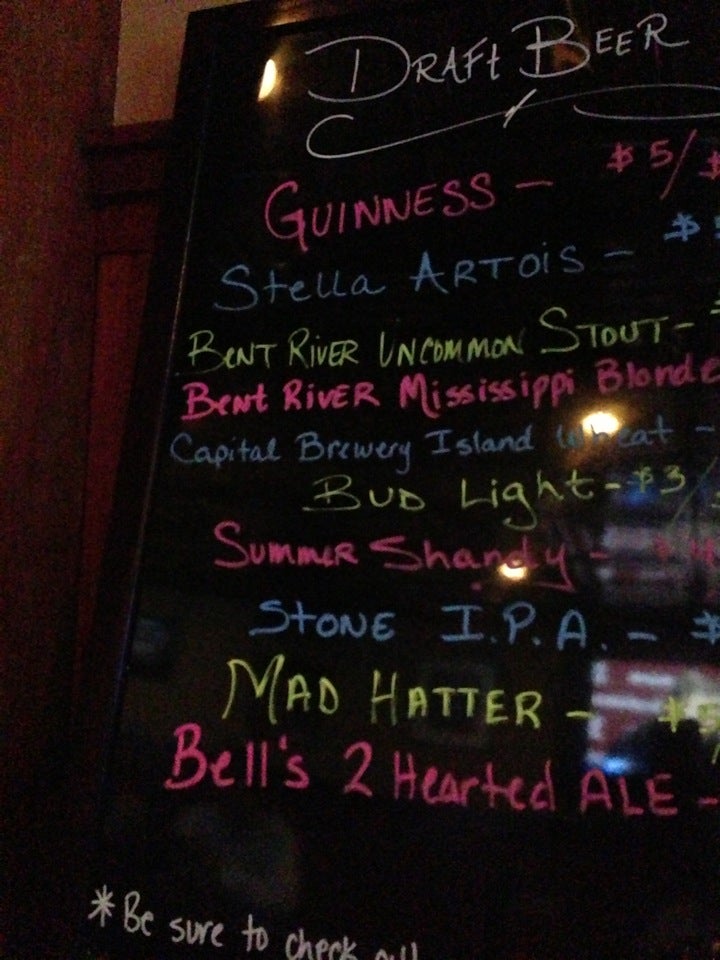 DRAFt BEER
GUINNESS - $5/$
Stella ARTOIS - $
BENT RIVER UNCOMMON STOUT -
BENT RIVER Mississippi Blonde
Capital Brewery Island Wheat -
BUD Light - $3
SUMMER Shandy -
STONE I.P.A. - $
MAD HATTER - $
Bell's 2 Hearted ALE -
*Be sure to check